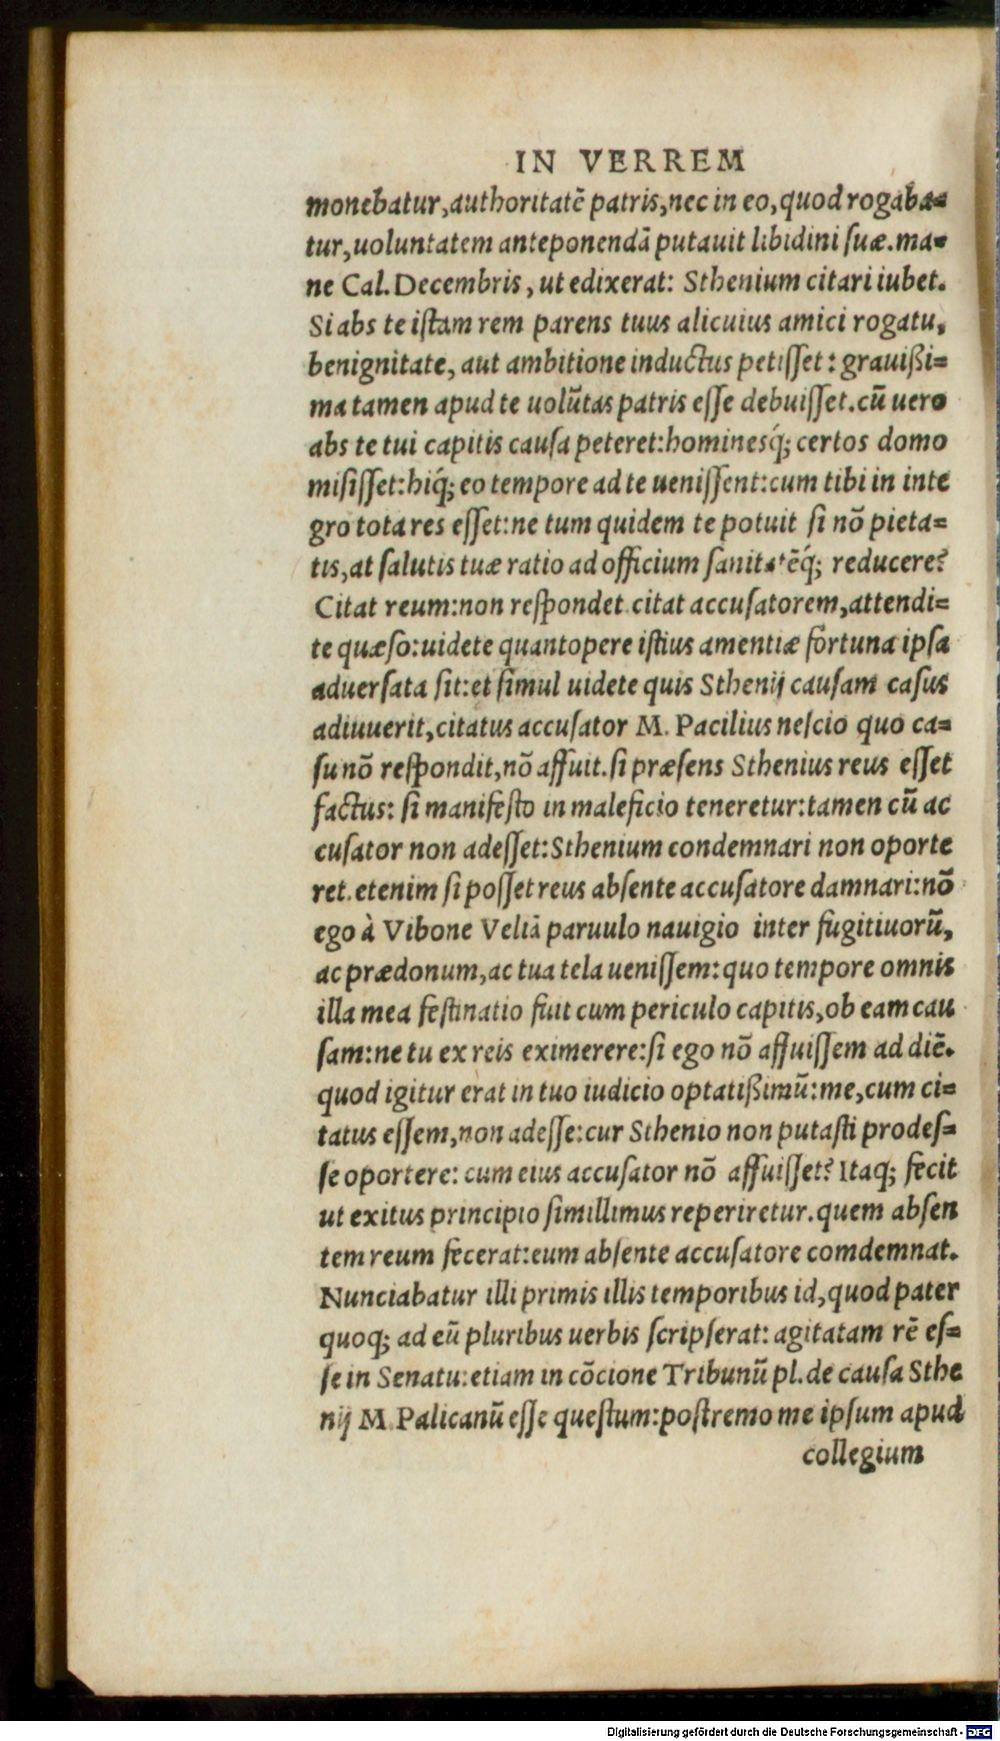 IN VERREM
monebatur,authoritatē patris,nec in eo,quod rogaba=
tur,uoluntatem anteponendā putauit libidini ſuæ.ma=
ne Cal.Decembris, ut edixerat: Sthenium citari iubet.
Si abs te iſtam rem parens tuus alicuius amici rogatu,
benignitate, aut ambitione inductus petiſſet: grauißi=
ma tamen apud te uolūtas patris eſſe debuiſſet.cū uero
abs te tui capitis cauſa peteret:hominesq́; certos domo
miſiſſet:hiq́; eo tempore ad te ueniſſent:cum tibi in inte
gro tota res eſſet:ne tum quidem te potuit ſi nō pieta=
tis,at ſalutis tuæ ratio ad officium ſanitatēq́; reducere?
Citat reum:non reſpondet.citat accuſatorem,attendi=
te quæſo:uidete quantopere iſtius amentiæ fortuna ipſa
aduerſata ſit:et ſimul uidete quis Sthenij cauſam caſus
adiuuerit,citatus accuſator M. Pacilius neſcio quo ca=
ſu nō reſpondit,nō affuit.ſi præſens Sthenius reus eſſet
factus: ſi manifeſto in maleficio teneretur:tamen cū ac
cuſator non adeſſet:Sthenium condemnari non oporte
ret.etenim ſi poſſet reus abſente accuſatore damnari:nō
ego à Vibone Veliā paruulo nauigio inter fugitiuorū,
ac prædonum,ac tua tela ueniſſem:quo tempore omnis
illa mea feſtinatio fuit cum periculo capitis,ob eam cau
ſam:ne tu ex reis eximerere:ſi ego nō affuiſſem ad diē.
quod igitur erat in tuo iudicio optatißimū:me,cum ci=
tatus eſſem,non adeſſe:cur Sthenio non putaſti prodeſ=
ſe oportere: cum eius accuſator nō affuiſſet? Itaq; fecit
ut exitus principio ſimillimus reperiretur.quem abſen
tem reum fecerat:eum abſente accuſatore comdemnat.
Nunciabatur illi primis illis temporibus id,quod pater
quoq; ad eū pluribus uerbis ſcripſerat: agitatam rē eſ=
ſe in Senatu:etiam in cōcione Tribunū pl.de cauſa Sthe
nij M.Palicanū eſſe queſtum:poſtremo me ipſum apud
collegium
Digitalisierung gefördert durch die Deutsche Forschungsgemeinschaft - DFG